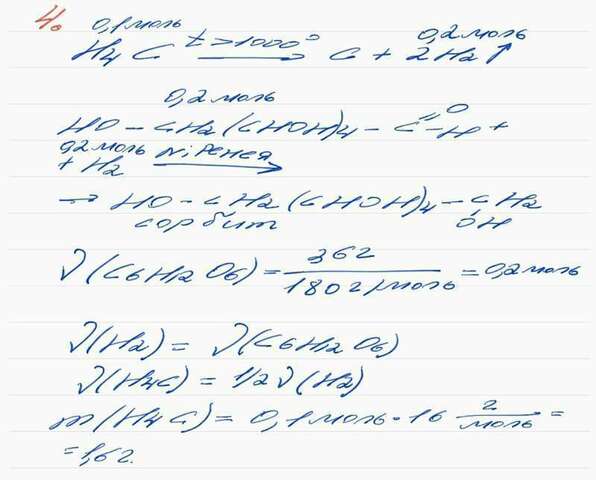 4.
0,1 моль 0,2 моль
H4C t>1000° → C + 2H2↑
0,2 моль
HO - CH2(CHOH)4 - C =O -H +
0,2 моль Ni Ренея
+ H2 →
→ HO - CH2(CHOH)4 - CH2
сорбит OH
ν(C6H12O6) = 36г / 180г/моль = 0,2 моль
ν(H2) = ν(C6H12O6)
ν(H4C) = 1/2 ν(H2)
m(H4C) = 0,1 моль · 16 г/моль =
= 1,6 г.